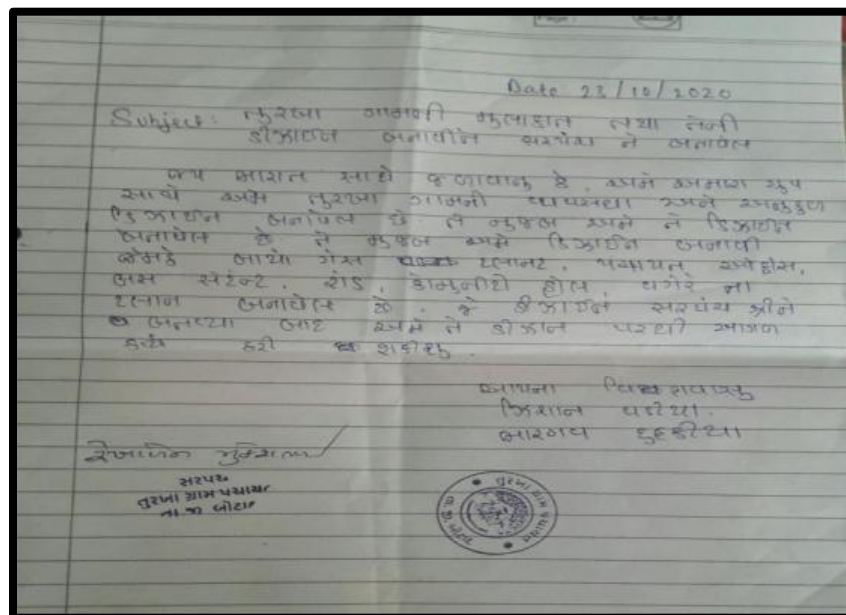 Date 23/10/2020
Subject: તુરખા ગામની મુલાકાત તથા તેની
ડીઝાઇન બનાવીને સરપંચ ને બતાવેલ
જય ભારત સાથે જણાવાનુ કે, અમે અમારા ગ્રુપ
સાથે અમે તુરખા ગામની અને અનુકુળ
ડિઝાઈન બનાવેલ છે. તે મુજબ અમે તે ડિઝાઈન
બનાવેલ છે. તે મુજબ અમે ડિઝાઈન બનાવી
જેમકે બાયો ગેસ પ્લાન્ટ, પંચાયત હોસ,
બસ સ્ટેન્ડ, રોડ, કોમ્યુનીટી હોલ, વગેરે ના
પ્લાન બનાવેલ છે. જે ડીઝાઈન સરપંચ શ્રીને
બતાવ્યા બાદ અમે તે ડીઝાન પરથી આગળ
કાર્ય કરી શકીશુ.
આપના વિશ્વાસુ
કિશાન વડીયા.
ભારગવ દુદકીયા
રેખાબેન
સરપંચ
તુરખા ગ્રામ પંચાયત
તા.જી. બોટાદ
તુરખા ગ્રામ પંચાયત